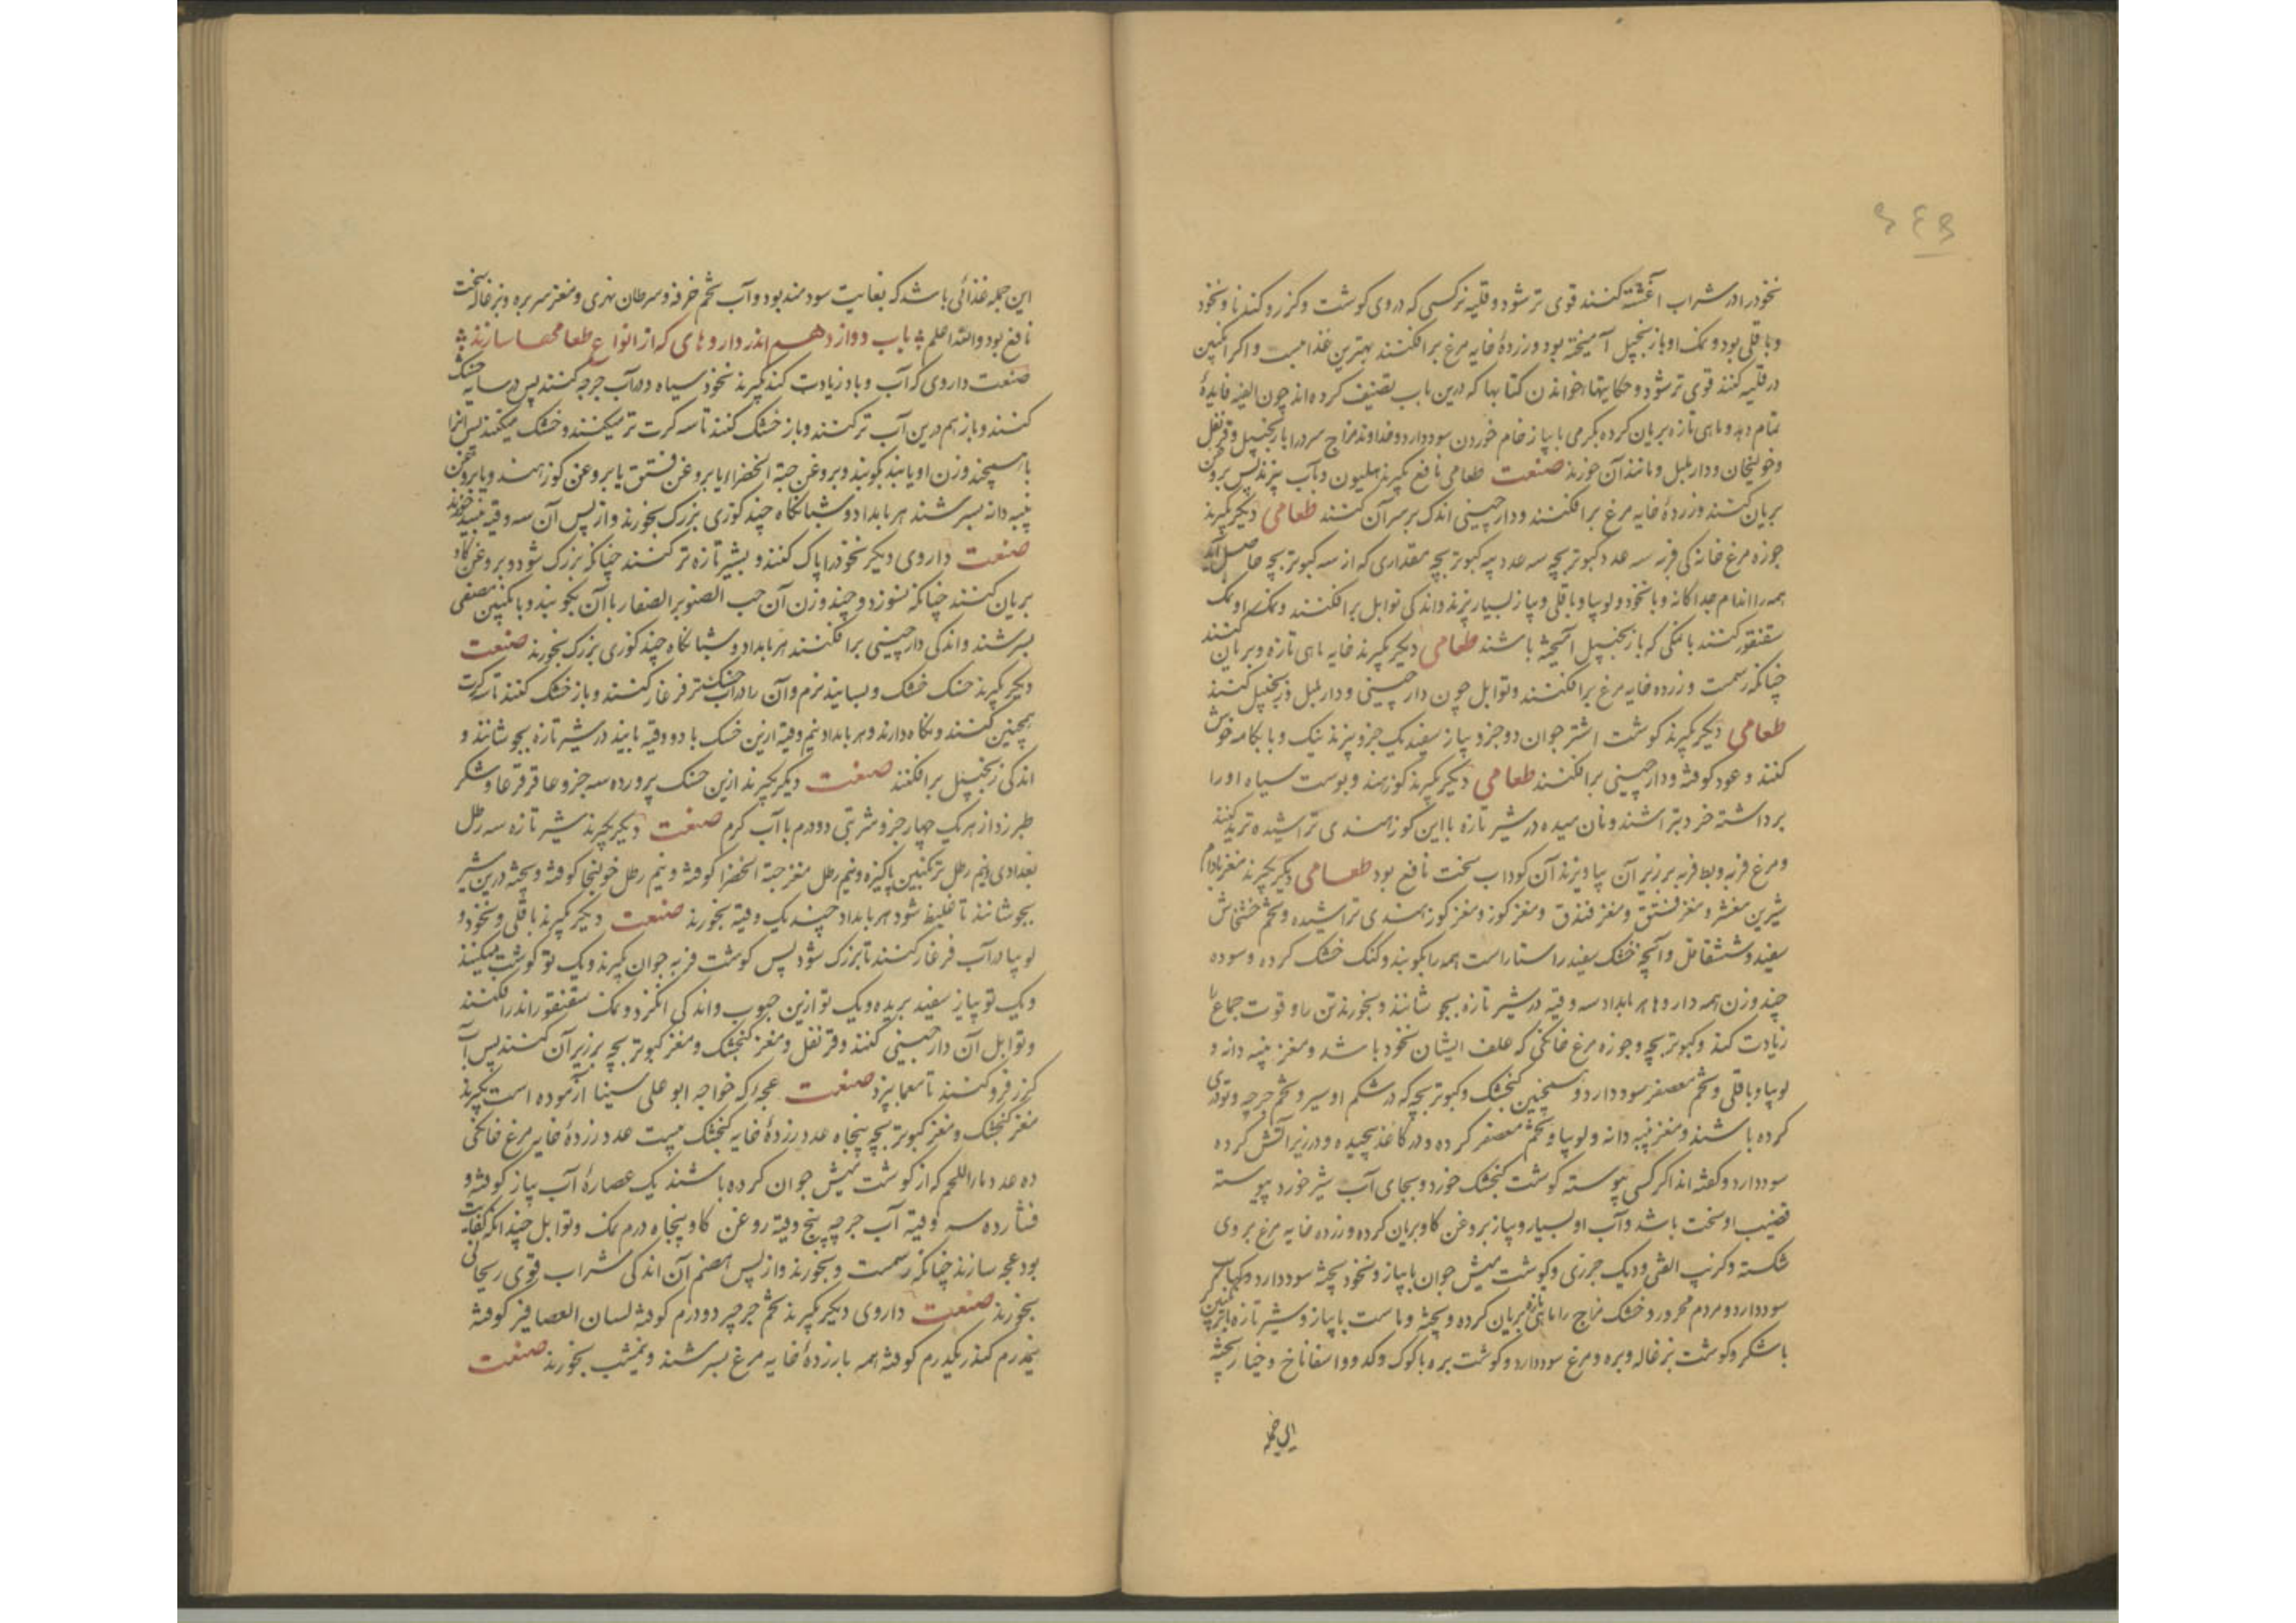 نخود را در شراب آغشته کنند قوی تر شود و قلیه نرکسی که در وی کوشت و کزر و کندنا و نخود
و باقلی بود و نمک او با زنجبیل آمیخته بود و زردهٔ خایه مرغ برافکنند بهترین غذاهست و اکر انکبین
در قلیه کنند قوی تر شود و حکایتها و خواندن کتابها که درین باب تصنیف کرده اند چون الفیه فایدهٔ
تمام دهد و ماهی تازه بریان کرده بکرمی با پیاز خام خوردن سود دارد و خداوند مزاج سرد را با زنجبیل و قرنفل
و خولنجان و دار بلبل و مانند آن خورند صنعت طعامی نافع بکیرند هلیون و بآب پزند پس بروغن
بریان کنند و زردهٔ خایه مرغ برافکنند و دارچینی اندک بر سر آن کنند طعامی دیکر بکیرند
جوزه مرغ خانه کی فربه سه عدد کبوتر بچه سه عدد پیه کبوتر بچه مقداری که از سه کبوتر بچه حاصل آید
همه را اندام جداکانه و با نخود و لوبیا و باقلی و پیاز بسیار پزند و اندکی توابل برافکنند و نمک او نمک
سقنقور کنند یا نمکی که با زنجبیل آمیخته باشند طعامی دیکر بکیرند خایه ماهی تازه و بریان کنند
چنانکه رسمست و زرده خایه مرغ برافکنند و توابل چون دارچینی و دار بلبل و زنجبیل کنند
طعامی دیکر بکیرند کوشت اشتر جوان دو جزو پیاز سفید یک جزو بپزند نیک و با بکامه خوش
کنند و عود کوفته و دارچینی برافکنند طعامی دیکر بکیرند کوز هند و پوست سیاه او را
برداشته خرد بتراشند و نان میده در شیر تازه با این کوز هندی تراشیده ترید کنند
و مرغ فربه و بط فربه بر زبر آن بیاویزند آن کوداب سخت نافع بود طعامی دیکر بکیرند مغز بادام
شیرین مقشر و مغز فستق و مغز فندق و مغز کوز و مغز کوز هندی تراشیده و تخم خشخاش
سفید و شقاقل و آنچه خشک سفید راستاراست همه را بکوبند و کنک خشک کرده و سوده
چند وزن همه داروها هر بامداد سه وقیه در شیر تازه بجوشانند و بخورند تن را و قوت جماع را
زیادت کند و کبوتر بچه و جوزه مرغ خانکی که علف ایشان نخود باشد و مغز پنبه دانه و
لوبیا و باقلی و تخم معصفر سود دارد و همچنین کنجشک و کبوتر بچه که در شکم او سیر و تخم جرجیر و تودری
کرده باشند و مغز پنبه دانه و لوبیا و تخم معصفر کرده و در کاغذ پیچیده و در زیر آتش کرده
سود دارد و کفته اند اکر کسی پیوسته کوشت کنجشک خورد و بجای آب شیر خورد پیوسته
قضیب او سخت باشد و آب او بسیار و پیاز بروغن کاو بریان کرده و زرده خایه مرغ بر وی
شکسته و کرنب القی و دیک جزری و کوشت میش جوان با پیاز و نخود پخته سود دارد و کباب
سود دارد و مردم محرور و خشک مزاج را ماهی تازه بریان کرده و پخته و ماست با پیاز و شیر تازه با ترنجبین
با شکر و کوشت بزغاله و بره و مرغ سود دارد و کوشت بره با کوک و کدو و اسفاناخ و خیار پخته
این جمله
این جمله غذائی باشد که بغایت سودمند بود و آب تخم خرفه و سرطان نهری و مغز سر بره و بزغاله سخت
نافع بود والله اعلم باب دوازدهم اندر داروهای که از انواع طعامها سازند
صنعت داروی که آب و باد زیادت کند بکیرند نخود سیاه و در آب جرجیر کنند پس در سایه خشک
کنند و باز هم درین آب تر کنند و باز خشک کنند تا سه کرت تر میکنند و خشک میکنند پس آنرا
با همچند وزن او پانید بکوبند و بروغن حبة الخضراء یا بروغن فستق یا بروغن کوز هند و یا بروغن
پنبه دانه بسرشند هر بامداد و شبانکاه چند کوزی بزرک بخورند و از پس آن سه وقیه نبید خورند
صنعت داروی دیکر نخود را پاک کنند و بشیر تازه تر کنند چنانکه بزرک شود و بروغن کاو
بریان کنند چنانکه نسوزد و چند وزن آن حب الصنوبر الصغار با آن بکوبند و بانکبین مصفی
بسرشند و اندکی دارچینی برافکنند هر بامداد و شبانکاه چند کوزی بزرک بخورند صنعت
دیکر بکیرند خسک خشک و بسایند نرم و آن را در آب خسک تر فرغار کنند و باز خشک کنند تا سه کرت
همچنین کنند و نکاه دارند و هر بامداد نیم وقیه ازین خسک با دو وقیه پانید در شیر تازه بجوشانند و
اندکی زنجبیل برافکنند صنعت دیکر بکیرند ازین خسک پرورده سه جزو عاقرقرحا و شکر
طبرزد از هر یک چهار جزو شربتی دو درم با آب کرم صنعت دیکر بکیرند شیر تازه سه رطل
بغدادی نیم رطل ترنکبین پاکیزه و نیم رطل مغز حبة الخضرا کوفته و نیم رطل خولنجا کوفته و بیخته درین شیر
بجوشانند تا غلیظ شود هر بامداد چند یک وقیه بخورند صنعت دیکر بکیرند باقلی و نخود و
لوبیا در آب فرغار کنند تا بزرک شود پس کوشت فربه جوان بکیرند و یک تو کوشت میکنند
و یک تو پیاز سفید بریده و یک تو ازین حبوب و اندکی انکزد و نمک سقنقور اندرافکنند
و توابل آن دارچینی کنند و قرنفل و مغز کنجشک و مغز کبوتر بچه بر زبر آن کنند پس آب
کزر فرو کنند تا معما پزد صنعت عجه که خواجه ابو علی سینا آزموده است بکیرند
مغز کنجشک و مغز کبوتر بچه پنجاه عدد زردهٔ خایه کنجشک بیست عدد زردهٔ خایه مرغ خانکی
ده عدد ماء اللحم که از کوشت میش جوان کرده باشند یک عصارهٔ آب پیاز کوفته و
فشارده سه وقیه آب جرجیر پنج وقیه روغن کاو پنجاه درم نمک و توابل چندانکه کفایت
بود عجه سازند چنانکه رسمست و بخورند و از پس هضم آن اندکی شراب قوی ریحانی
بخورند صنعت داروی دیکر بکیرند تخم جرجیر دو درم کوفته لسان العصافیر کوفته
نیمدرم کندر یکدرم کوفته همه با زردهٔ خایه مرغ بسرشند و نمشب بخورند صنعت